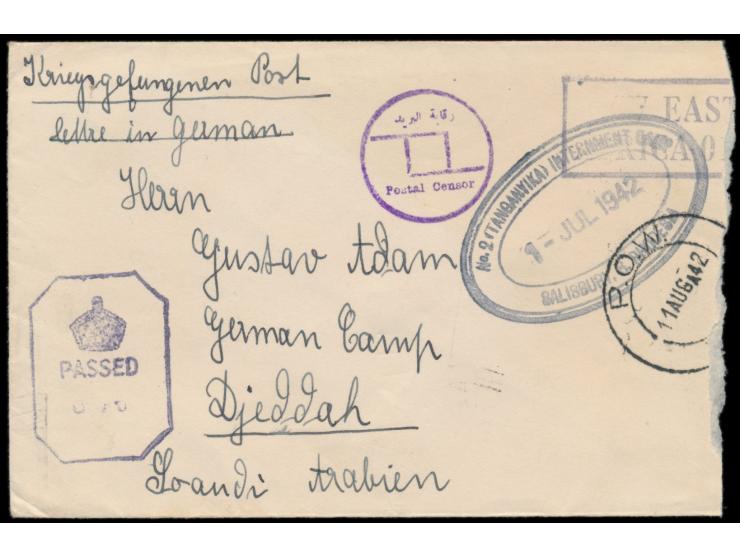 Kriegsgefangenen Post
lettre in German
رقابة البريد
Postal Censor
EAST
No. 2 (TANGANYIKA) INTERNMENT CAMP
1 - JUL 1942
SALISBURY
P.O.W.
11 AUG 42
Herrn
Gustav Adam
German Camp
Djeddah
Soandi Arabien
PASSED